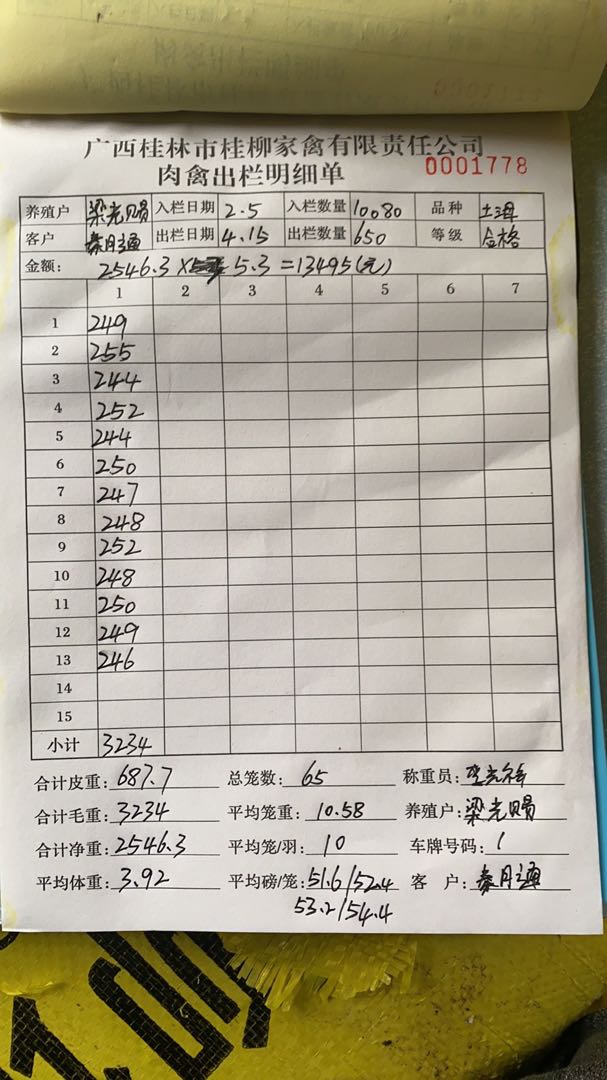 广西桂林市桂柳家禽有限责任公司
肉禽出栏明细单 0001778
养殖户 梁光赐 入栏日期 2.5 入栏数量 10080 品种 土
客户 秦月通 出栏日期 4.15 出栏数量 650 等级 合格
金额: 2546.3 × 5.3 = 13495(元)
1 2 3 4 5 6 7
1 249
2 255
3 244
4 252
5 244
6 250
7 247
8 248
9 252
10 248
11 250
12 249
13 246
14
15
小计 3234
合计皮重: 687.7 总笼数: 65 称重员:
合计毛重: 3234 平均笼重: 10.58 养殖户: 梁光赐
合计净重: 2546.3 平均笼/羽: 10 车牌号码: 1
平均体重: 3.92 平均磅/笼: 51.6/52.4 客 户: 秦月通
53.2/54.4